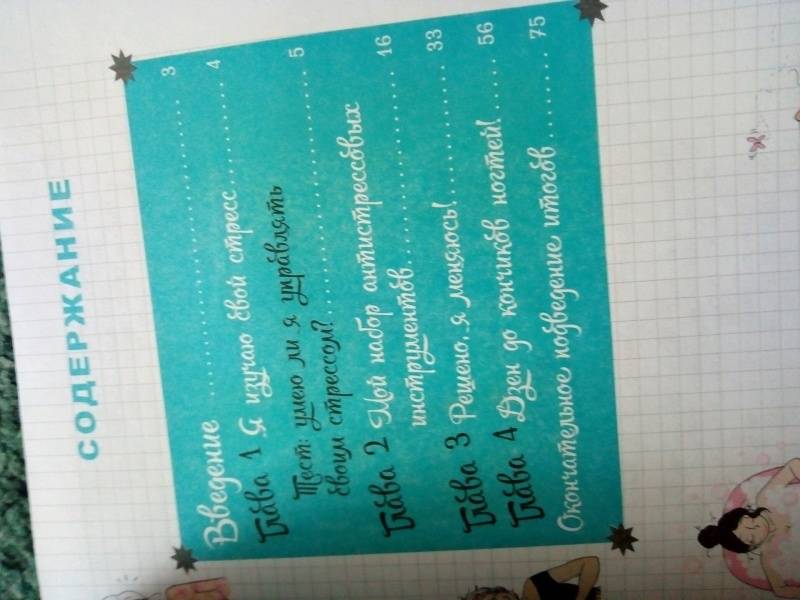 СОДЕРЖАНИЕ
Введение 3
Глава 1 Я изучаю свой стресс 4
Тест: умею ли я управлять
своим стрессом? 5
Глава 2 Мой набор антистрессовых
инструментов 16
Глава 3 Решено, я меняюсь! 33
Глава 4 Дзен до кончиков ногтей! 56
Окончательное подведение итогов 75